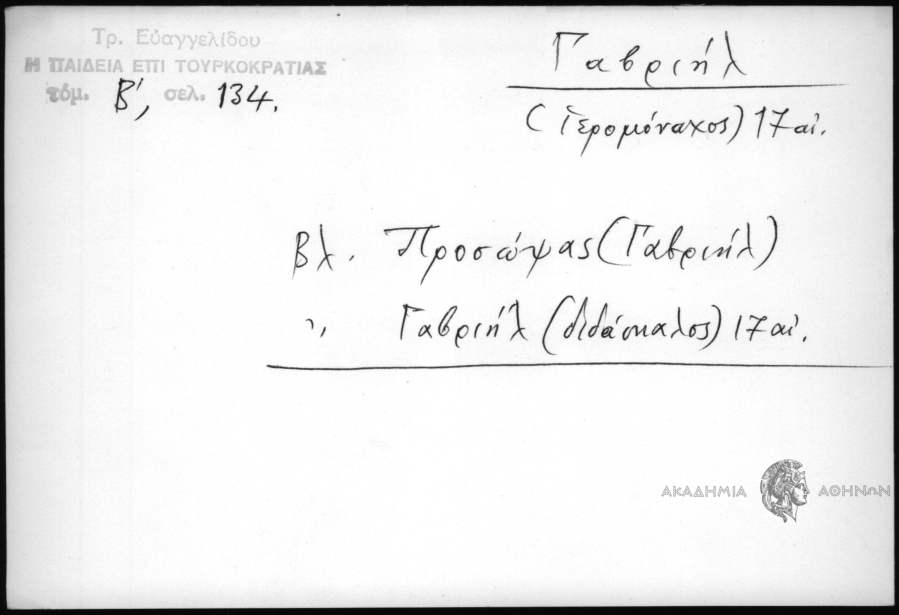 Τρ. Εὐαγγελίδου
Η ΠΑΙΔΕΙΑ ΕΠΙ ΤΟΥΡΚΟΚΡΑΤΙΑΣ
τόμ. Β', σελ. 134.
Γαβριήλ
(ἱερομόναχος) 17 αἰ.
Βλ. Προσώψας (Γαβριήλ)
〃 Γαβριήλ (διδάσκαλος) 17 αἰ.
ΑΚΑΔΗΜΙΑ ΑΘΗΝΩΝ